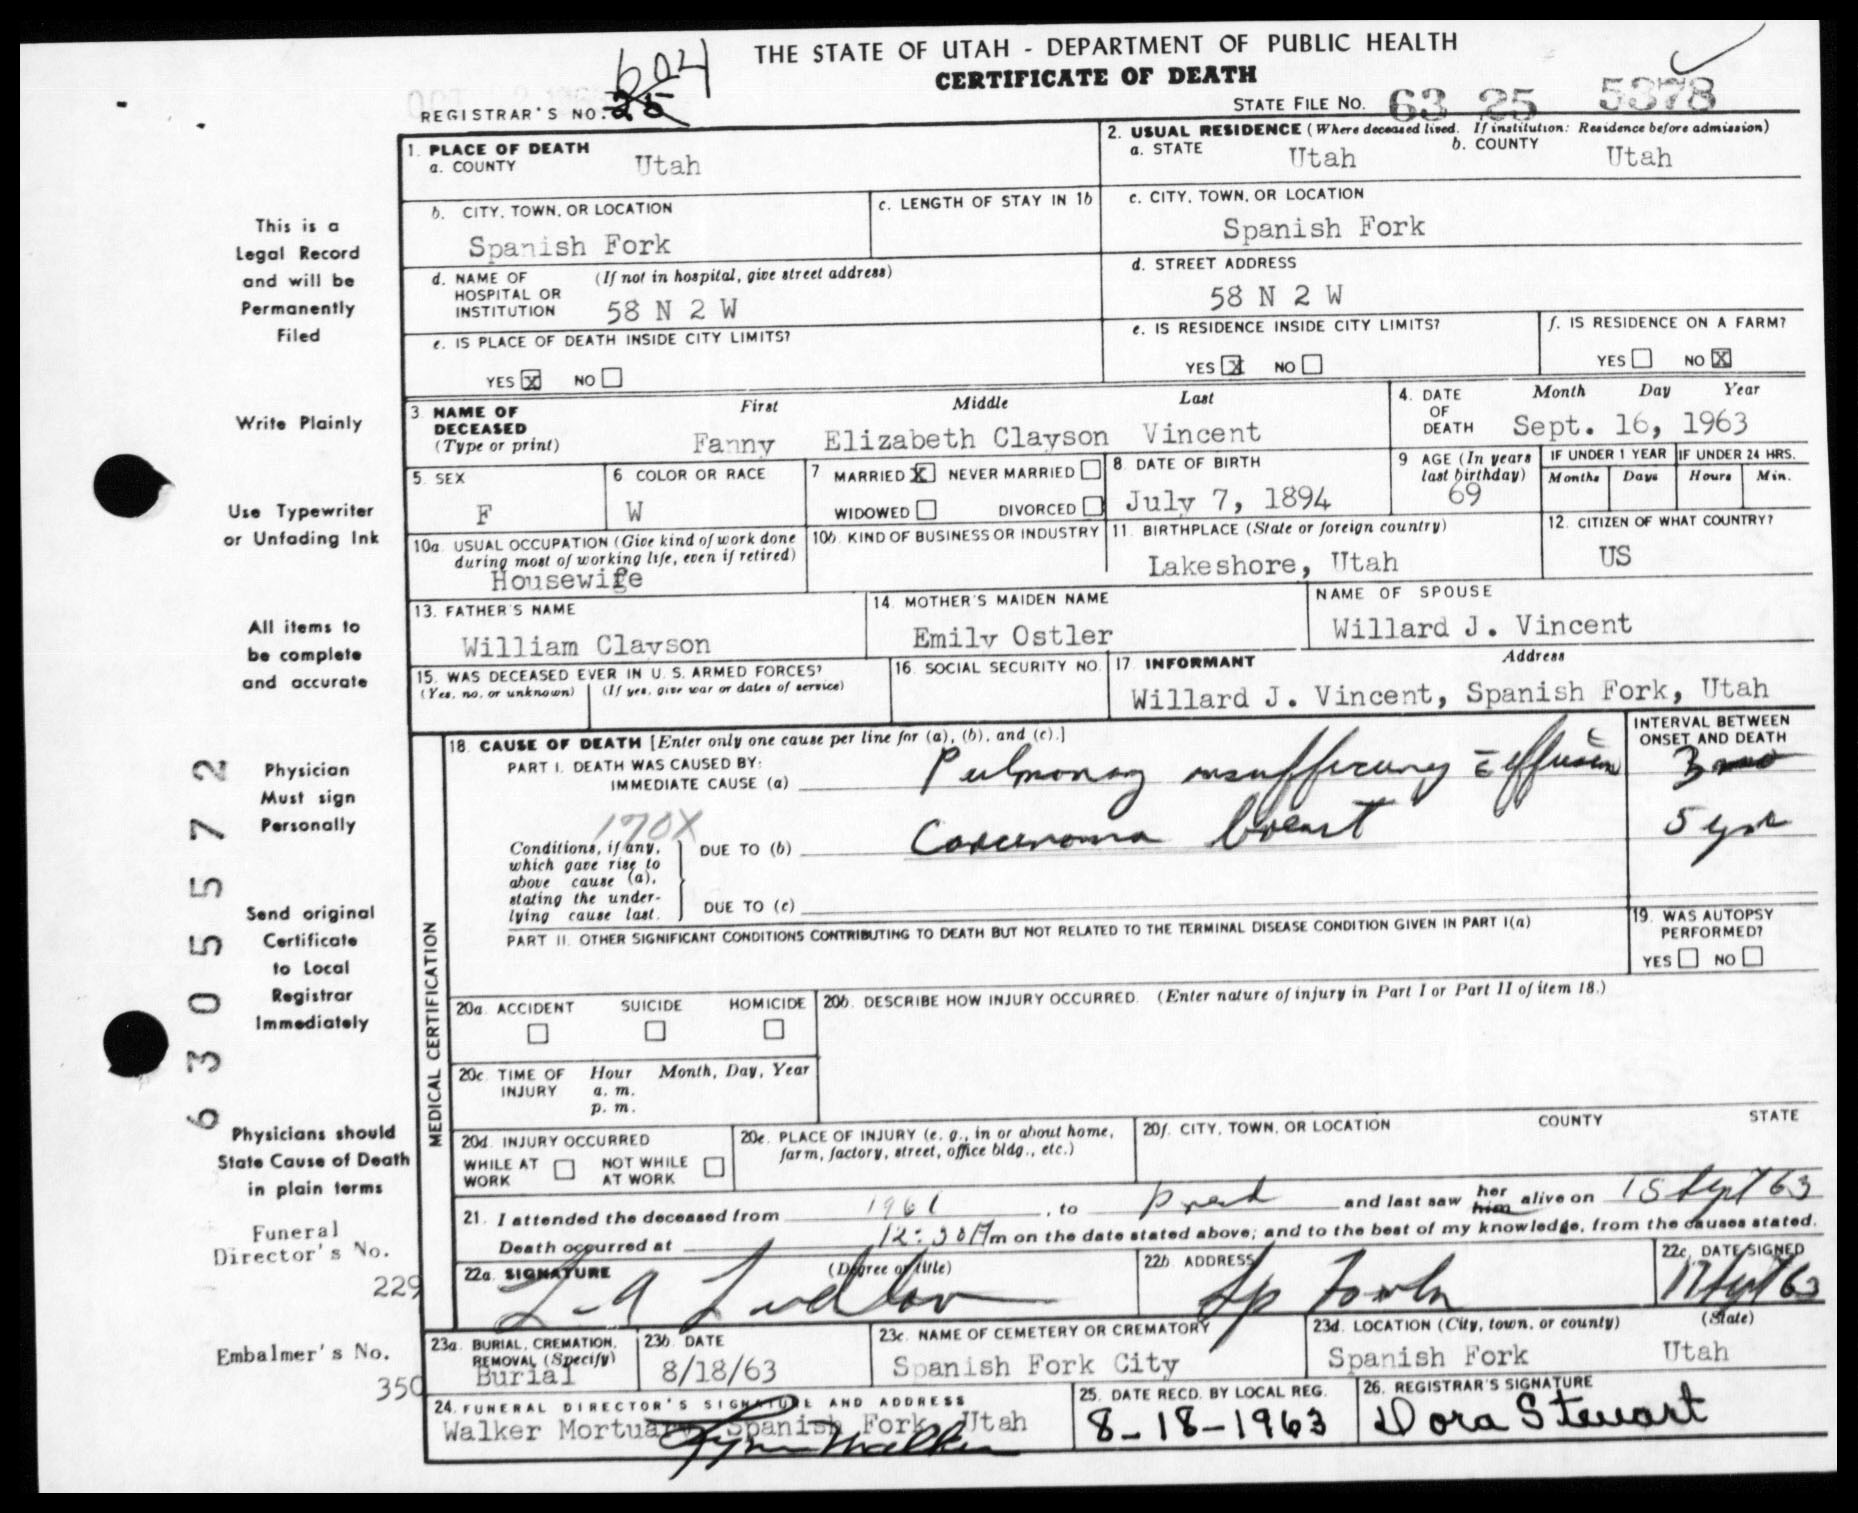 THE STATE OF UTAH - DEPARTMENT OF PUBLIC HEALTH
CERTIFICATE OF DEATH
604
REGISTRAR'S NO. 25
STATE FILE NO. 63 25 5378
1. PLACE OF DEATH
a. COUNTY Utah
2. USUAL RESIDENCE (Where deceased lived. If institution: Residence before admission)
a. STATE Utah b. COUNTY Utah
b. CITY, TOWN, OR LOCATION Spanish Fork
c. LENGTH OF STAY IN 1b
c. CITY, TOWN, OR LOCATION
Spanish Fork
d. NAME OF HOSPITAL OR INSTITUTION (If not in hospital, give street address)
58 N 2 W
d. STREET ADDRESS
58 N 2 W
e. IS PLACE OF DEATH INSIDE CITY LIMITS?
YES X NO
e. IS RESIDENCE INSIDE CITY LIMITS?
YES X NO
f. IS RESIDENCE ON A FARM?
YES NO X
3. NAME OF DECEASED (Type or print)
First Middle Last
Fanny Elizabeth Clayson Vincent
4. DATE OF DEATH Month Day Year
Sept. 16, 1963
5. SEX
F
6. COLOR OR RACE
W
7. MARRIED X NEVER MARRIED
WIDOWED DIVORCED
8. DATE OF BIRTH
July 7, 1894
9. AGE (In years last birthday)
69
IF UNDER 1 YEAR
Months Days
IF UNDER 24 HRS.
Hours Min.
10a. USUAL OCCUPATION (Give kind of work done during most of working life, even if retired)
Housewife
10b. KIND OF BUSINESS OR INDUSTRY
11. BIRTHPLACE (State or foreign country)
Lakeshore, Utah
12. CITIZEN OF WHAT COUNTRY?
US
13. FATHER'S NAME
William Clayson
14. MOTHER'S MAIDEN NAME
Emily Ostler
NAME OF SPOUSE
Willard J. Vincent
15. WAS DECEASED EVER IN U. S. ARMED FORCES?
(Yes, no, or unknown) (If yes, give war or dates of service)
16. SOCIAL SECURITY NO.
17. INFORMANT Address
Willard J. Vincent, Spanish Fork, Utah
MEDICAL CERTIFICATION
18. CAUSE OF DEATH [Enter only one cause per line for (a), (b), and (c).]
PART I. DEATH WAS CAUSED BY:
IMMEDIATE CAUSE (a) Pulmonary insufficiency c effusion
INTERVAL BETWEEN ONSET AND DEATH
3 mo
170X
Conditions, if any, which gave rise to above cause (a), stating the underlying cause last.
DUE TO (b) Carcinoma breast
5 yrs
DUE TO (c)
PART II. OTHER SIGNIFICANT CONDITIONS CONTRIBUTING TO DEATH BUT NOT RELATED TO THE TERMINAL DISEASE CONDITION GIVEN IN PART I(a)
19. WAS AUTOPSY PERFORMED?
YES NO
20a. ACCIDENT SUICIDE HOMICIDE
20b. DESCRIBE HOW INJURY OCCURRED. (Enter nature of injury in Part I or Part II of item 18.)
20c. TIME OF INJURY Hour Month, Day, Year
a. m.
p. m.
20d. INJURY OCCURRED
WHILE AT WORK NOT WHILE AT WORK
20e. PLACE OF INJURY (e. g., in or about home, farm, factory, street, office bldg., etc.)
20f. CITY, TOWN, OR LOCATION COUNTY STATE
21. I attended the deceased from 1961, to and last saw her him alive on 15 Sept 63
Death occurred at 12:30 A m on the date stated above; and to the best of my knowledge, from the causes stated.
22a. SIGNATURE (Degree or title)
L-A Ludlow
22b. ADDRESS
Sp Fork
22c. DATE SIGNED
17 Sept 63
23a. BURIAL, CREMATION, REMOVAL (Specify)
Burial
23b. DATE
8/18/63
23c. NAME OF CEMETERY OR CREMATORY
Spanish Fork City
23d. LOCATION (City, town, or county) (State)
Spanish Fork Utah
24. FUNERAL DIRECTOR'S SIGNATURE AND ADDRESS
Walker Mortuary Spanish Fork, Utah
25. DATE RECD. BY LOCAL REG.
8-18-1963
26. REGISTRAR'S SIGNATURE
Dora Stewart
This is a
Legal Record
and will be
Permanently
Filed
Write Plainly
Use Typewriter
or Unfading Ink
All items to
be complete
and accurate
Physician
Must sign
Personally
Send original
Certificate
to Local
Registrar
Immediately
Physicians should
State Cause of Death
in plain terms
Funeral
Director's No.
229
Embalmer's No.
350
63055572